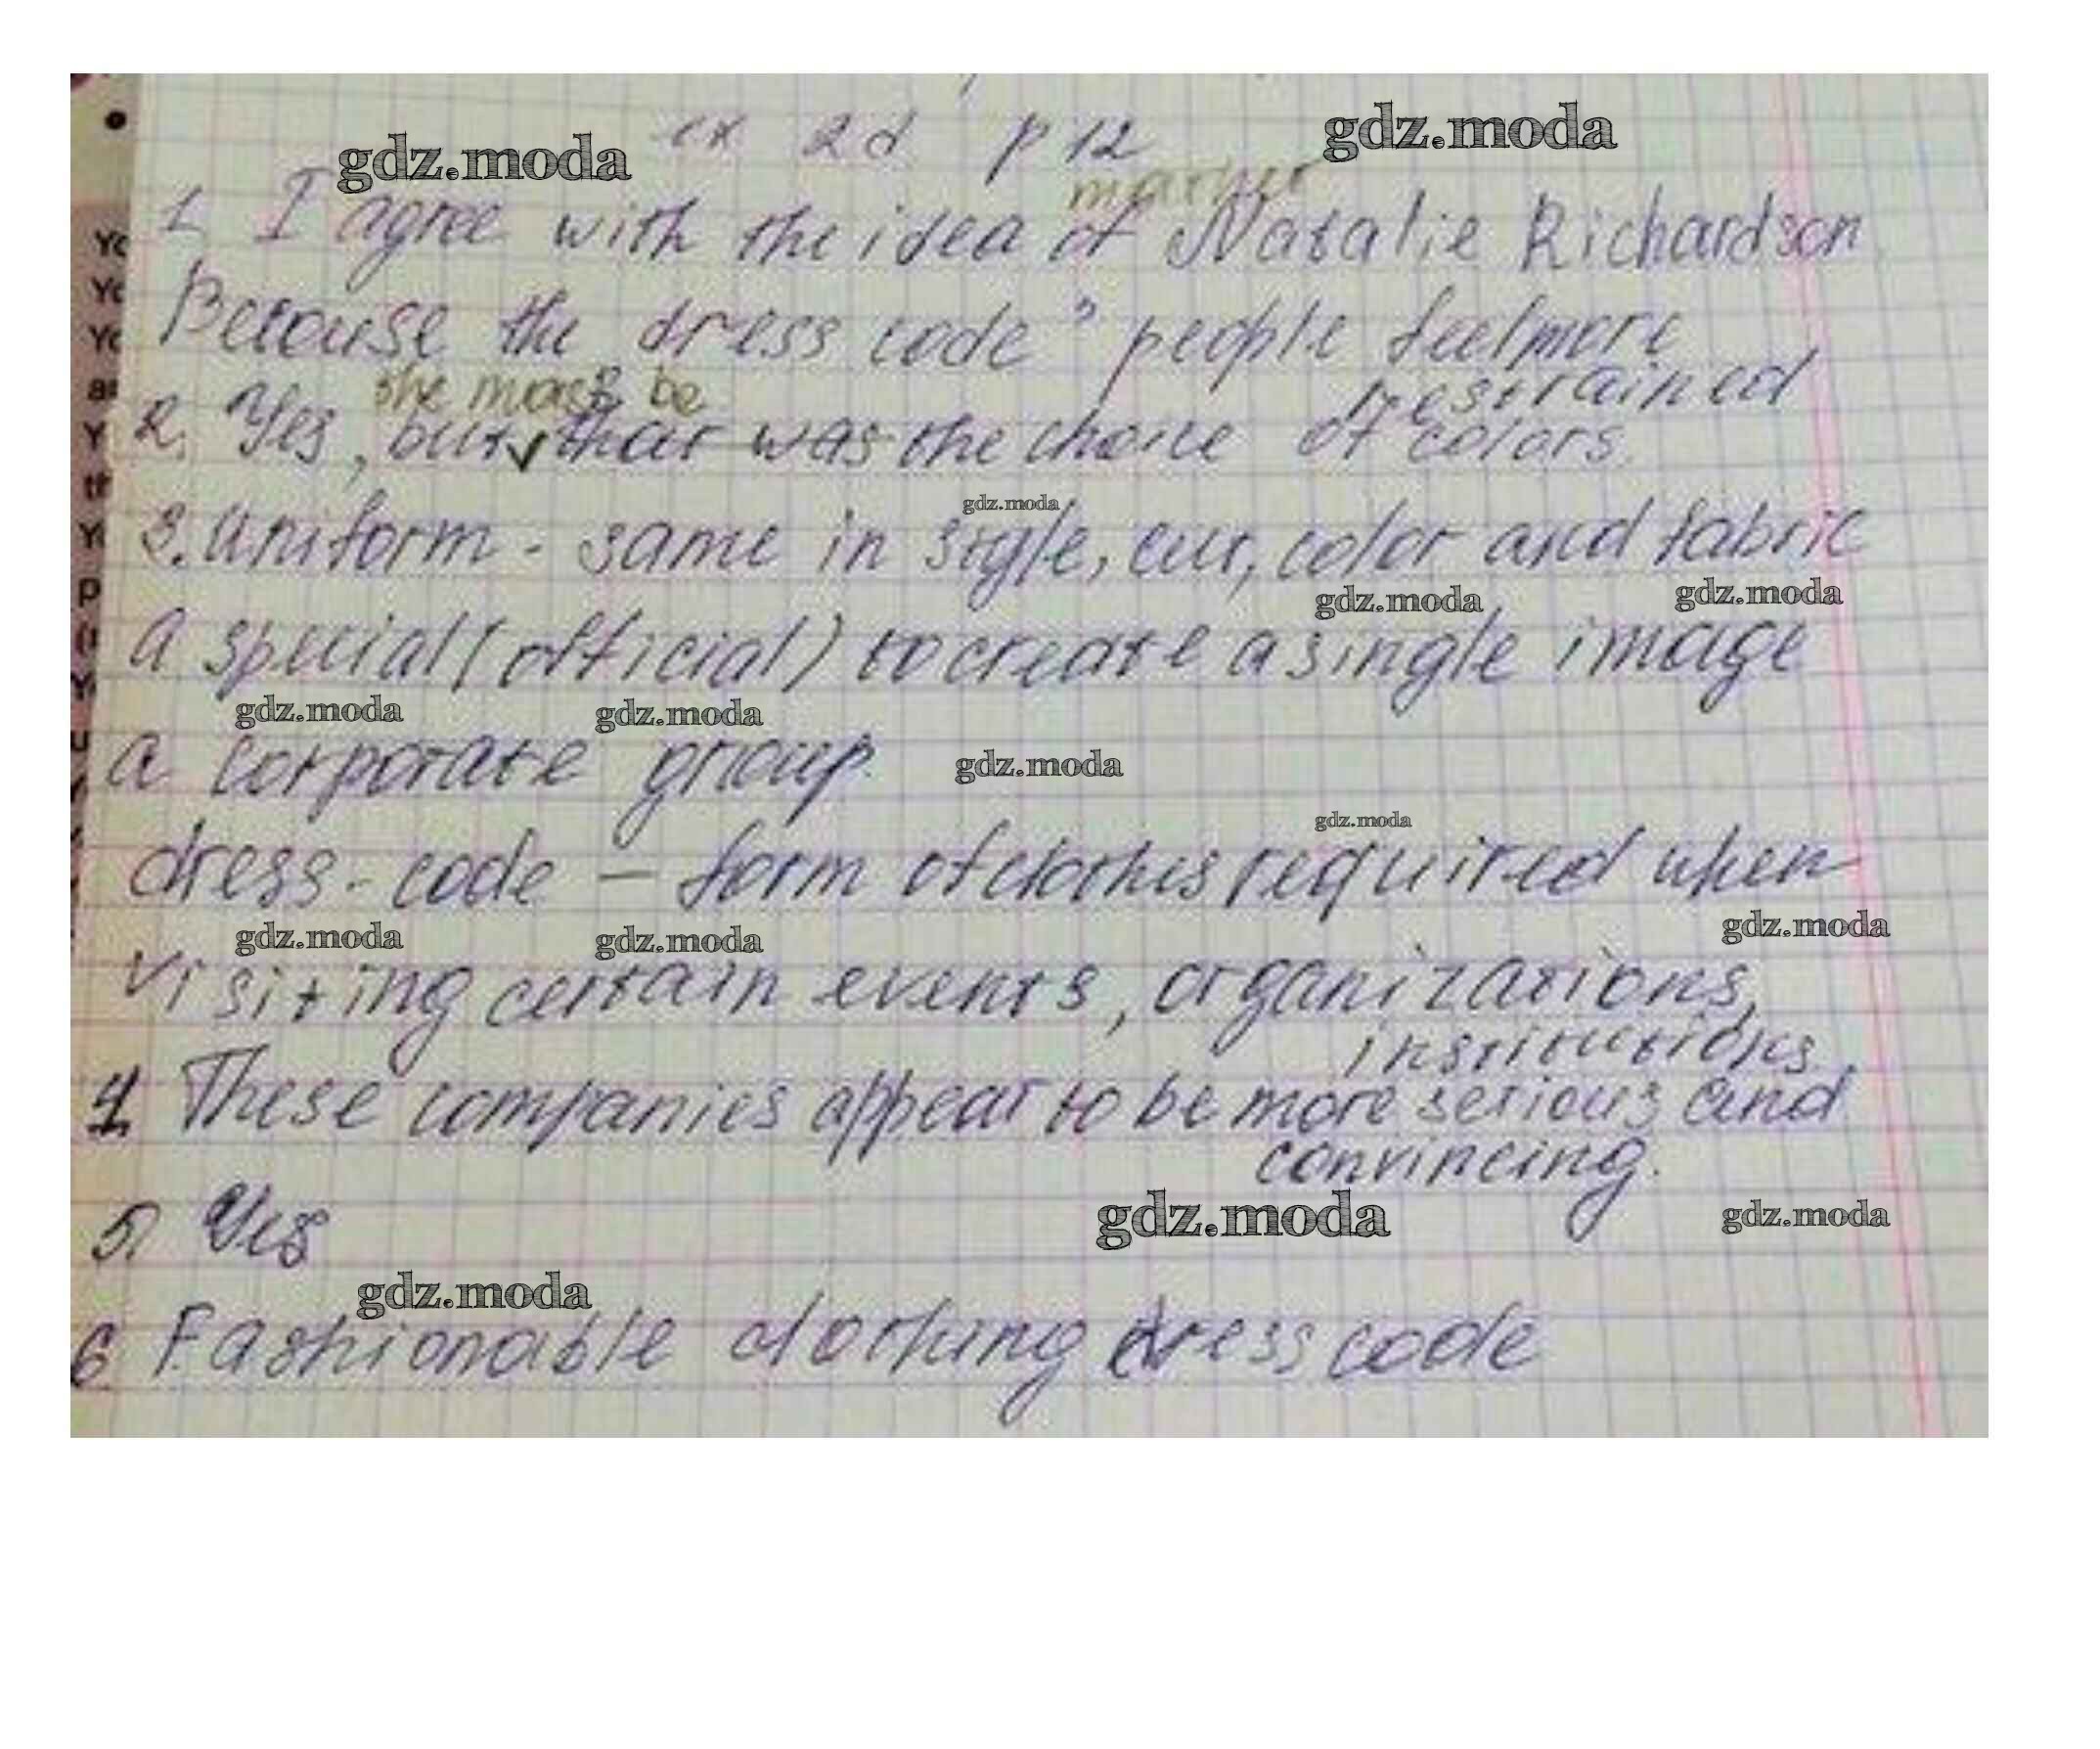 ex 2d p 12
gdz.moda gdz.moda
1. I agree with the idea of Natalie Richardson
Because the dress code people feel more
restrained
she must be
2. Yes, but that was the choice of colors.
gdz.moda
3. uniform - same in style, cut, color and fabric
gdz.moda gdz.moda
a special (official) to create a single image
gdz.moda gdz.moda
a corporate group
gdz.moda
gdz.moda
dress-code – form of clothes required when
gdz.moda gdz.moda gdz.moda
visiting certain events, organizations,
institutions
4. These companies appear to be more serious and
convincing.
5. Yes
gdz.moda gdz.moda
gdz.moda
6 Fashionable clothing dress code